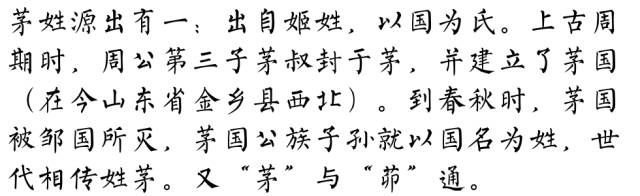 茅姓源出有一：出自姬姓，以国为氏。上古周
期时，周公第三子茅叔封于茅，并建立了茅国
（在今山东省金乡县西北）。到春秋时，茅国
被邹国所灭，茅国公族子孙就以国名为姓，世
代相传姓茅。又“茅”与“茆”通。